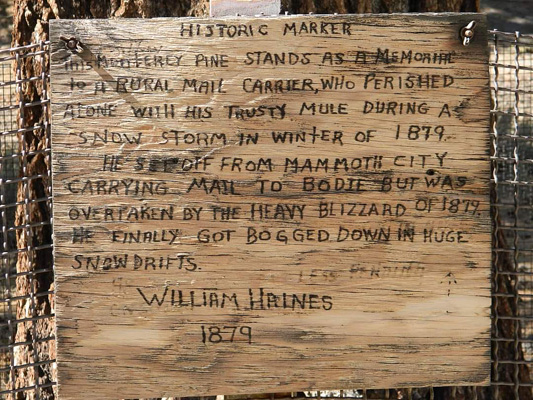 HISTORIC MARKER
THIS MONTERLY PINE STANDS AS A MEMORIAL
TO A RURAL MAIL CARRIER, WHO PERISHED
ALONE WITH HIS TRUSTY MULE DURING A
SNOW STORM IN WINTER OF 1879.
HE SET OFF FROM MAMMOTH CITY
CARRYING MAIL TO BODIE BUT WAS
OVERTAKEN BY THE HEAVY BLIZZARD OF 1879.
HE FINALLY GOT BOGGED DOWN IN HUGE
SNOWDRIFTS.
LESS
WILLIAM HAINES
1879